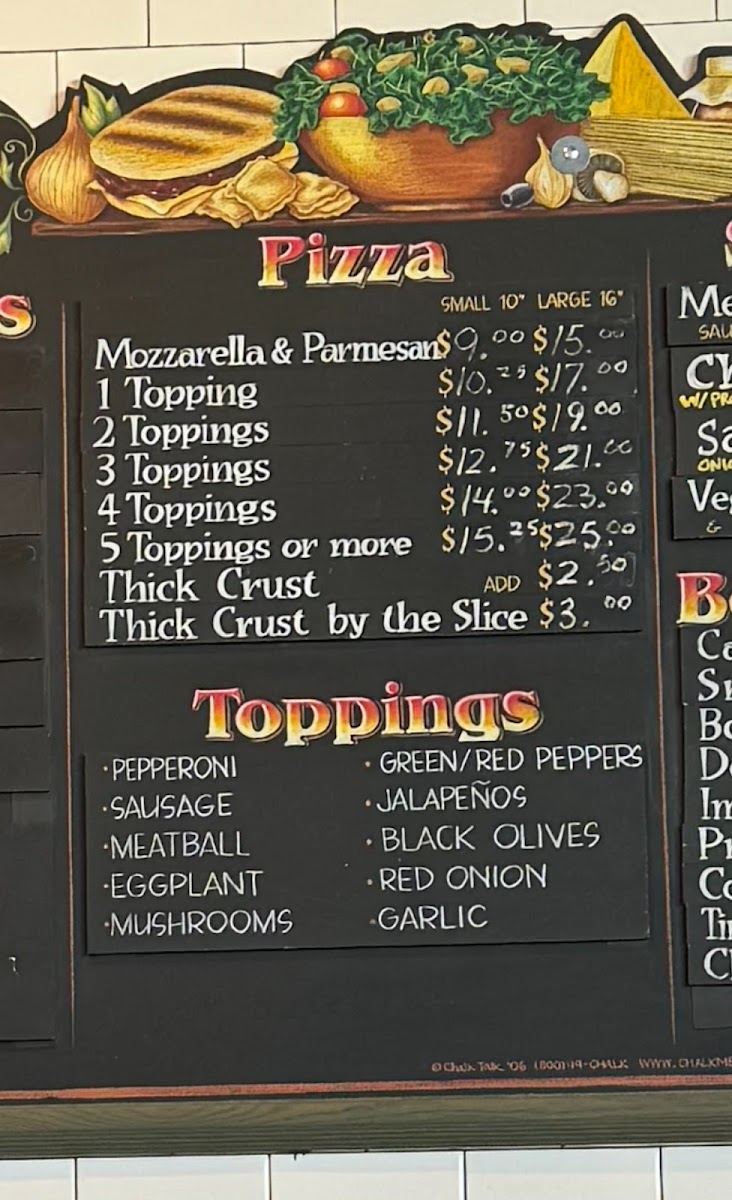 Pizza
SMALL 10" LARGE 16"
Mozzarella & Parmesan $9.00 $15.00
1 Topping $10.25 $17.00
2 Toppings $11.50 $19.00
3 Toppings $12.75 $21.00
4 Toppings $14.00 $23.00
5 Toppings or more $15.25 $25.00
Thick Crust ADD $2.50
Thick Crust by the Slice $3.00
Toppings
·PEPPERONI
·SAUSAGE
·MEATBALL
·EGGPLANT
·MUSHROOMS
·GREEN/RED PEPPERS
·JALAPEÑOS
·BLACK OLIVES
·RED ONION
·GARLIC
© Chalk Talk '06
s
Me
SAU
Ch
W/ PR
Sa
ONIO
Veg
&
B
Ca
S
Bo
D
Im
Pr
Co
Ti
C